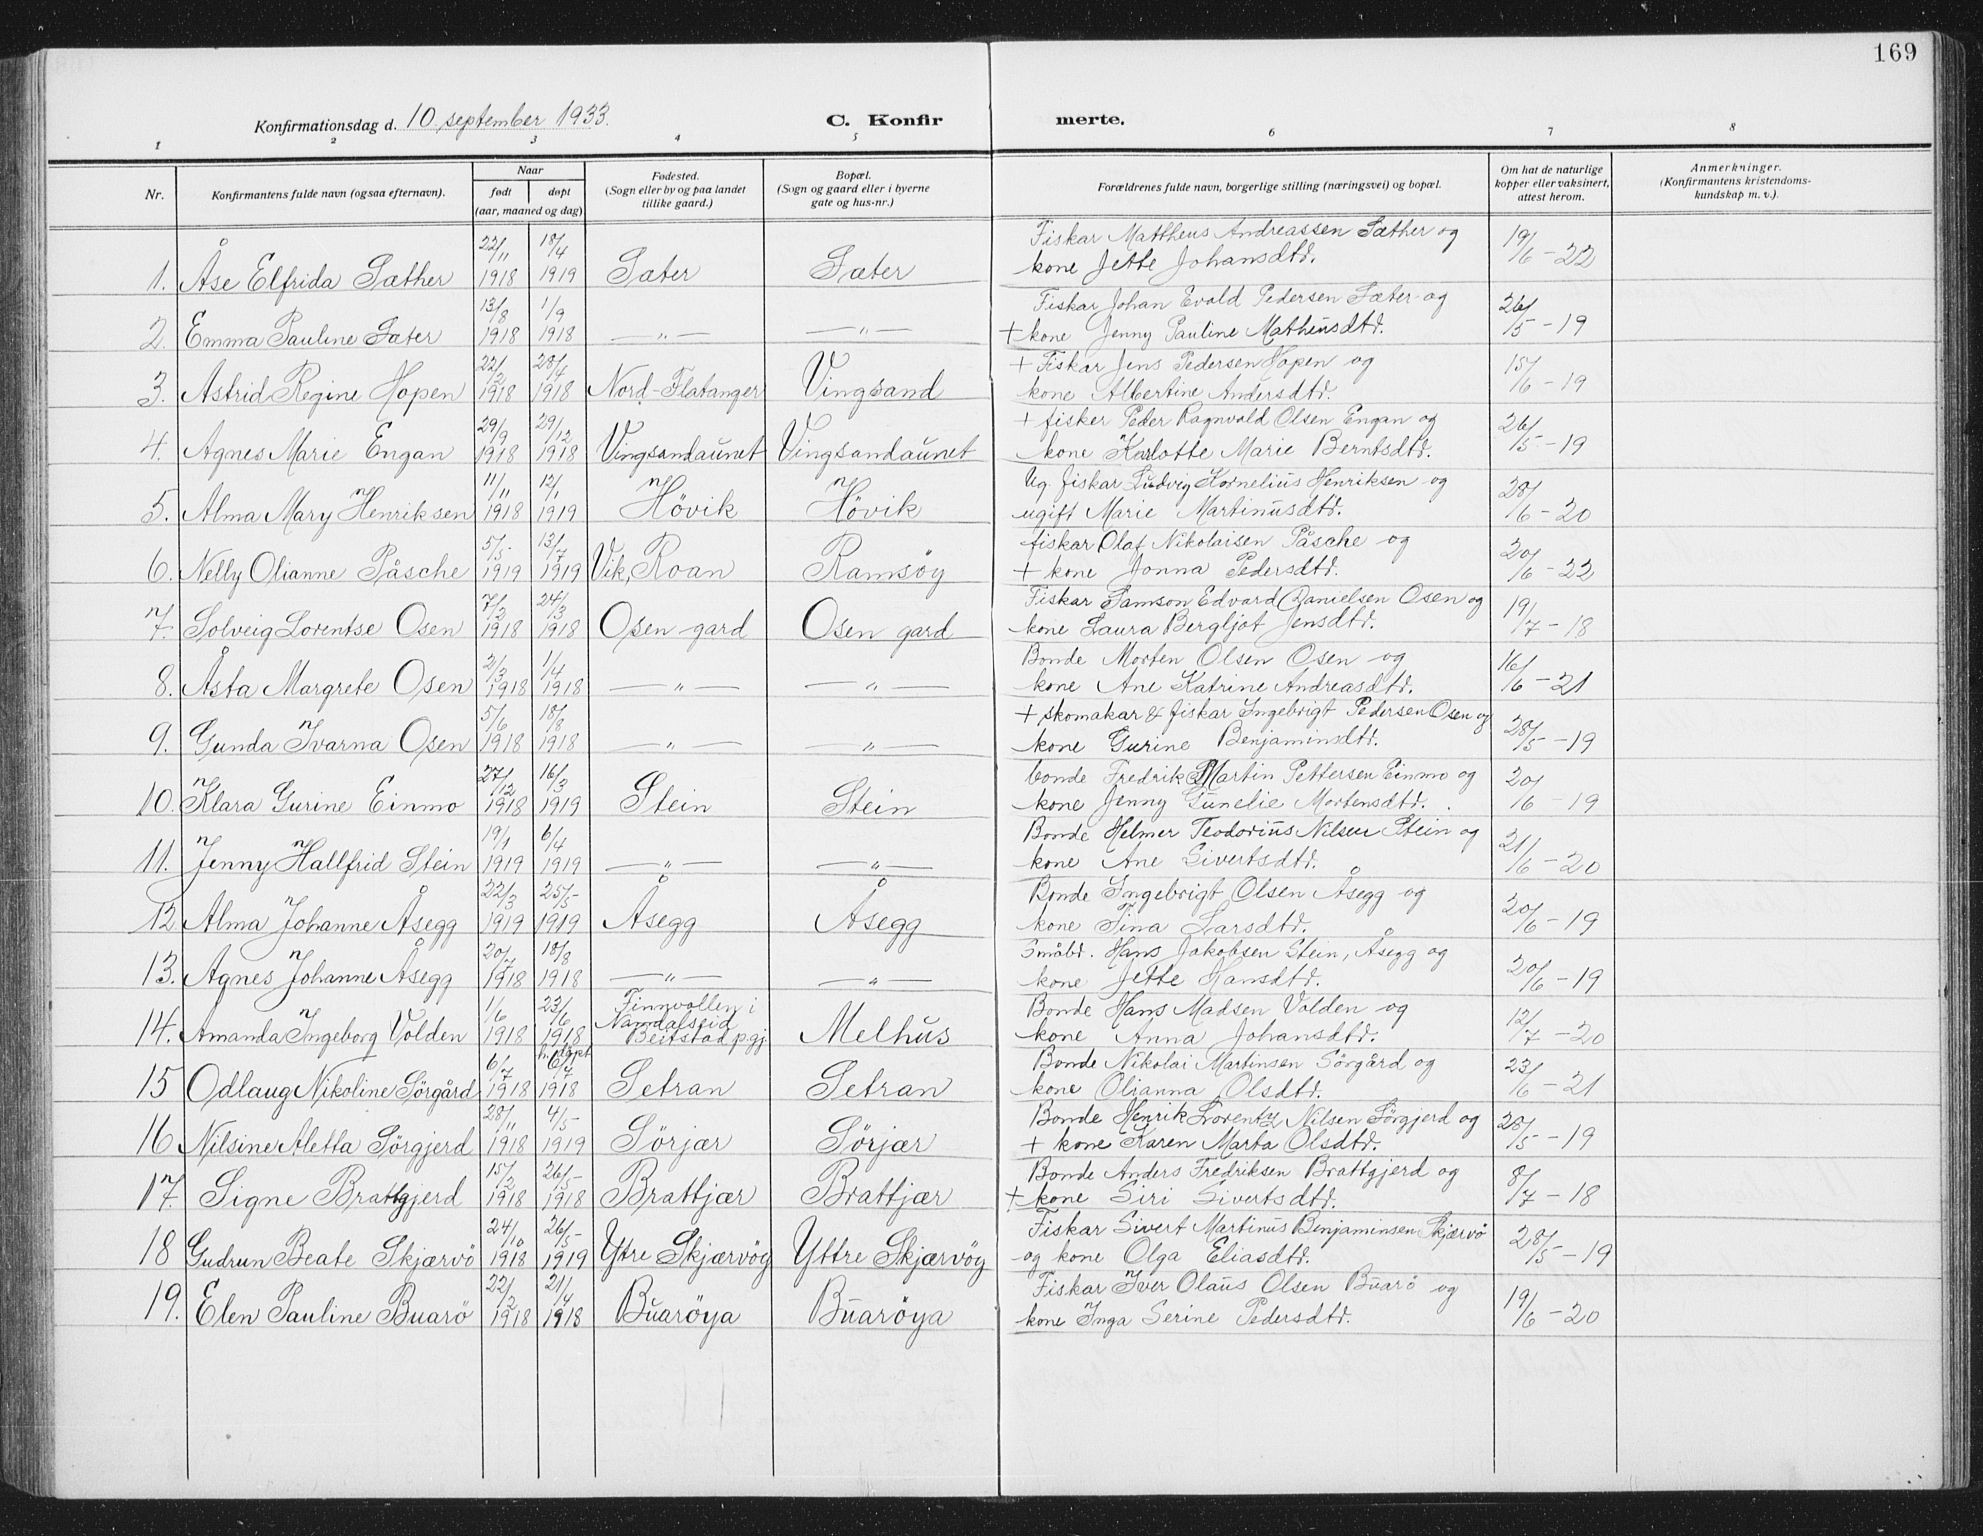 169
Konfirmationsdag d. 10. september 1933. C. Konfirmerte.
1 2 3 4 5 6 7 8
Nr. Konfirmantens fulde navn (ogsaa efternavn). Naar født døpt (aar, maaned og dag) Fødested. (Sogn eller by og paa landet tillike gaard.) Bopæl. (Sogn og gaard eller i byerne gate og hus-nr.) Forældrenes fulde navn, borgerlige stilling (næringsvei) og bopæl. Om hat de naturlige kopper eller vaksinert, attest herom. Anmerkninger. (Konfirmantens kristendoms-kundskap m. v.).
1. Åse Elfrida Sæther 22/11 1918 18/4 1919 Sæter Sæter Fiskar Mattheus Andreassen Sæther og kone Jette Johansdtr. 19/6-22
2. Emma Pauline Sæter 13/8 1918 1/9 1918 —„— —„— Fiskar Johan Evald Pedersen Sæter og + kone Jenny Pauline Matheusdtr. 26/5-19
3. Astrid Regine Hopen 22/2 1918 28/4 1918 Nord-Flatanger Vingsand + Fiskar Jens Pedersen Hopen og kone Albertine Andersdtr. 15/6-19
4. Agnes Marie Engan 29/9 1918 29/12 1918 Vingsandaunet Vingsandaunet + fisker Peder Ragnvald Olsen Engan og kone Karlotte Marie Berntsdtr. 26/5-19
5. Alma Mary Henriksen 11/11 1918 12/1 1919 Hövik Hövik Ug. fiskar Ludvig Kornelius Henriksen og ugift Marie Martinusdtr. 28/6-20
6. Nelly Olianne Påsche 5/5 1919 13/7 1919 Vik, Roan Ramsöy fiskar Olaf Nikolaisen Påsche og + kone Jonna Pedersdtr. 20/6-22
7. Solveig Lorentse Osen 7/2 1918 24/3 1918 Osen gard Osen gard Fiskar Samson Edvard Danielsen Osen og kone Laura Bergljot Jensdtr. 19/7-18
8. Åsta Margrete Osen 2/3 1918 1/4 1918 —„— —„— Bonde Morten Olsen Osen og kone Ane Katrine Andreasdtr. 16/6-21
9. Gunda Ivarna Osen 5/6 1918 18/8 1918 —„— —„— + skomakar & fiskar Ingebrigt Pedersen Osen og kone Gurine Benjaminsdtr. 28/5-19
10. Klara Gurine Einmo 27/12 1918 16/3 1919 Stein Stein bonde Fredrik Martin Pettersen Einmo og kone Jenny Gunelie Mortensdtr. 20/6-19
11. Jenny Hallfrid Stein 19/1 1919 6/4 1919 —„— —„— Bonde Helmer Teodorius Nilsen Stein og kone Ane Sivertsdtr. 21/6-20
12 Alma Johanne Åsegg 22/3 1919 25/5 1919 Åsegg Åsegg Bonde Ingebrigt Olsen Åsegg og kone Tina Larsdtr. 20/6-19
13. Agnes Johanne Åsegg 20/7 1918 18/8 1918 —„— —„— Småbd. Hans Jakobsen Stein, Åsegg og kone Jette Hansdtr. 20/6-19
14. Amanda Ingeborg Volden 1/6 1918 23/6 1918 Finnvollen i Namdalseid Beitstad p.gj. Melhus Bonde Hans Madsen Volden og kone Anna Johansdtr. 12/7-20
15 Odlaug Nikoline Sörgård 6/7 1918 h.döpt 6/7 1918 Setran Setran Bonde Nikolai Martinsen Sörgård og kone Olianna Olsdtr. 23/6-21
16 Nilsine Aletta Sörgjerd 28/11 1918 4/5 1919 Sörjær Sörjær Bonde Henrik Lorentz Nilsen Sörgjerd og + kone Karen Marta Olsdtr. 28/5-19
17. Signe Brattgjerd 15/2 1918 26/5 1918 Brattjær Brattjær Bonde Anders Fredriksen Brattgjerd og + kone Siri Sivertsdtr. 8/7-18
18 Gudrun Beate Skjærvö 24/10 1918 26/5 1919 Ytre Skjærvöy Yttre Skjærvöy Fiskar Sivert Martinus Benjaminsen Skjærvö og kone Olga Eliasdtr. 28/5-19
19. Elen Pauline Buarö 22/2 1918 21/4 1918 Buaröya Buaröya Fiskar Iver Olaus Olsen Buarö og kone Inga Serine Pedersdtr. 19/6-20